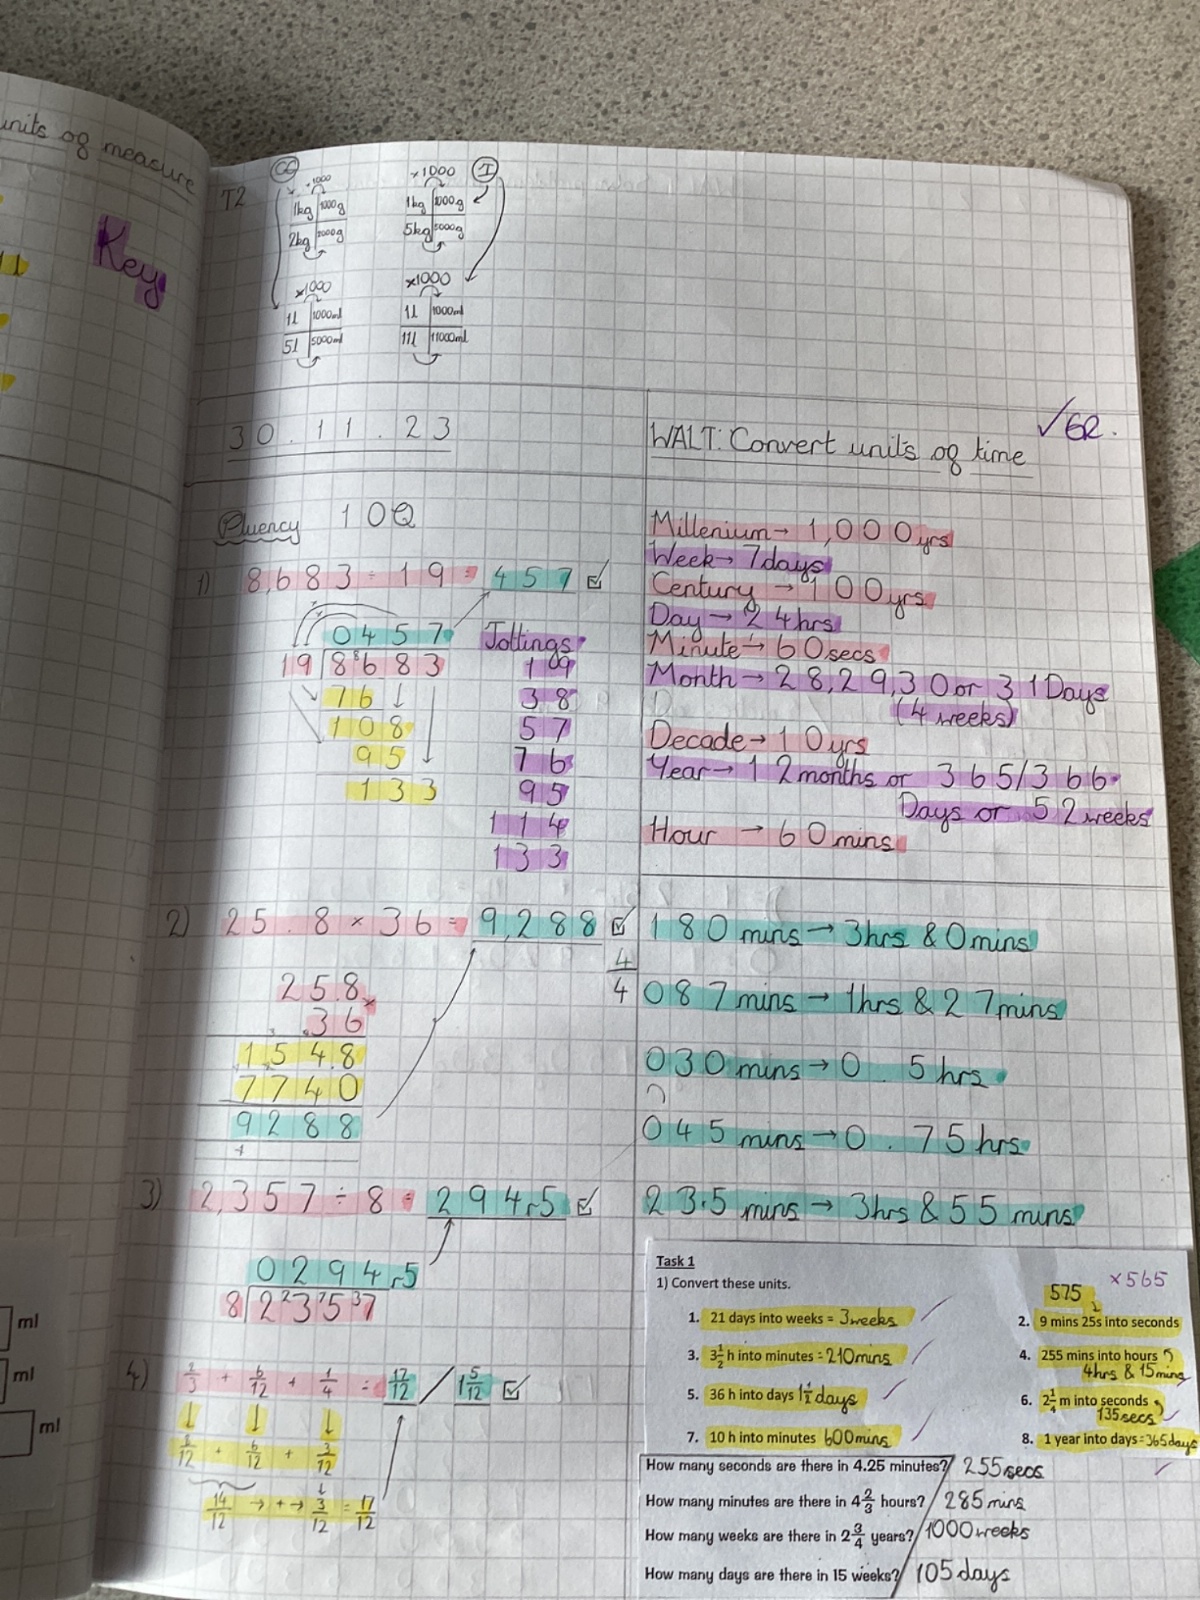 units og measure
Key
ml
ml
ml
T2
×1000
1kg 1000g
2kg 2000g
×1000
I
1kg 1000g
5kg 5000g
×1000
1L 1000ml
5l 5000ml
×1000
1L 1000ml
11L 11000ml
30.11.23
WALT: Convert units og time
Fluency 10Q
1) 8,683 ÷ 19 = 457
0457
19 8683
76
108
95
133
Jottings
19
38
57
76
95
114
133
2) 25.8 × 36 = 9,288
4
4
25.8
36
1548
7740
9288
3) 2,357 ÷ 8 = 294.5
0294.5
8 2 ²3 ⁷5 ³7
4) 2/3 + 6/12 + 1/4 = 17/12 / 1 5/12
8/12 + 6/12 + 3/12
14/12 → + → 3/12 = 17/12
Millenium → 1,000yrs
Week → 7days
Century → 100yrs
Day → 24hrs
Minute → 60secs
Month → 28,29,30 or 31 Days
(4 weeks)
Decade → 10yrs
Year → 12months or 365/366
Days or 52weeks
Hour → 60mins
180 mins → 3hrs & 0mins
087mins → 1hrs & 27mins
030 mins → 0.5 hrs
045 mins → 0.75hrs
23.5 mins → 3hrs & 55 mins
Task 1
1) Convert these units.
×565
575
1. 21 days into weeks = 3weeks
2. 9 mins 25s into seconds
3. 3½ h into minutes = 210mins
4. 255 mins into hours
4hrs & 15mins
5. 36 h into days 1½ days
6. 2¼ m into seconds
135secs
7. 10 h into minutes 600mins
8. 1 year into days = 365days
How many seconds are there in 4.25 minutes? 255secs
How many minutes are there in 4⅔ hours? 285mins
How many weeks are there in 2¾ years? 1000weeks
How many days are there in 15 weeks? 105days